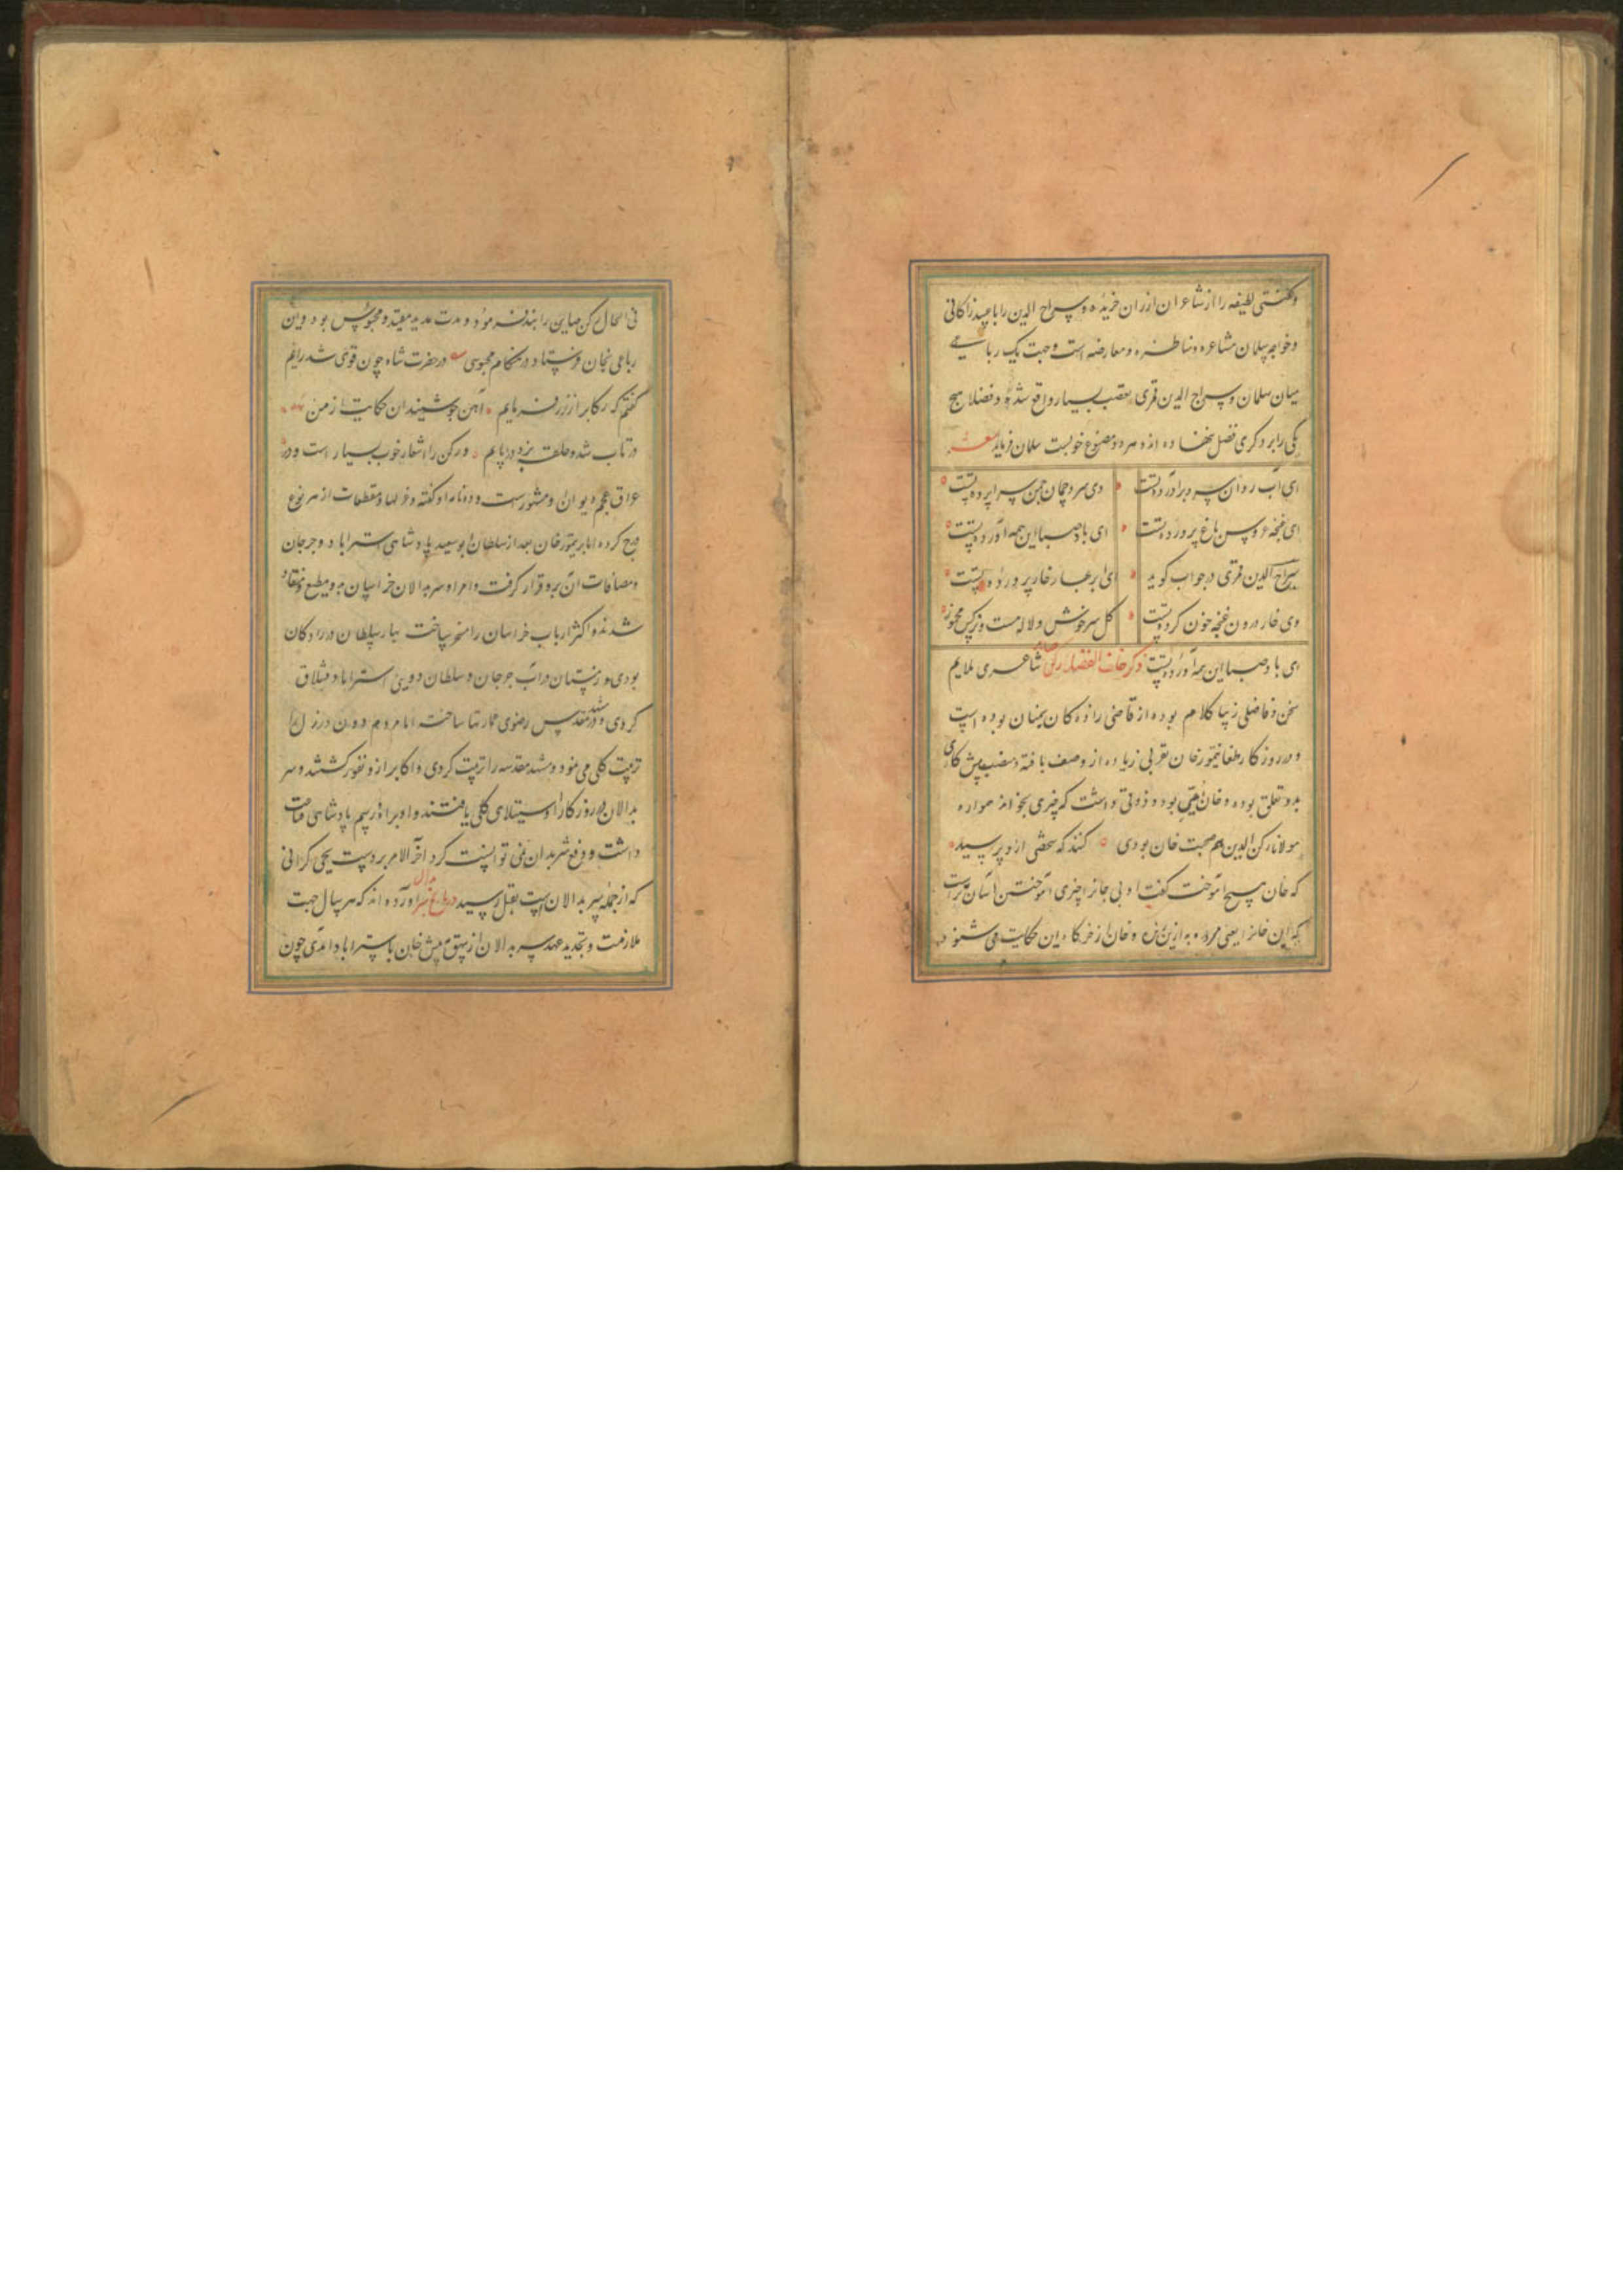 و گفتی لطیفه را از شاعران ارزان خریده و سراج الدین را با عبید زاکانی
و خواجه سلمان مشاعره و مناظره و معارضه است و جهت یک رباعی
میان سلمان و سراج الدین قمری تعصب بسیار واقع شده و فضلا هیچ
یکی را بر دگری فضل ننهاده‌اند و هر دو مصنوع خوبست سلمان فرماید
ای آب روان سرو برآورده تست
وی سرو چمان چمن سراپرده تست
ای غنچه عروس باغ پرورده تست
ای باد صبا این همه آورده تست
سراج الدین قمری در جواب گوید
ای ابر بهار خار پرورده تست
وی خار درون غنچه خون کرده تست
گل سرخوش و لاله مست و نرگس مخمور
ای باد صبا این همه آورده تست ذکر شاعری ملایم
سخن و فاضلی زیبا کلام بوده از قاضی زاده کان سمنان بوده است
و در روزگار طغایتیمور خان تقربی زیاده از وصف یافته و منصب پیش
بدو تعلق بوده و خان بودی و ذوقی داشت که چیزی بخواند همواره
مولانا رکن الدین هم صحبت خان بودی گنند که شخصی از وی پرسید
که خان هیچ آموخت گفت او بی جانرا چیزی آموختن آسان ترست
که این خانرا یعنی مرده به از زنده و خان از خرگاه این حکایت می شنود
فی الحال رکن صاین را بند فرمود و مدت مدید مقید و محبوس بود و این
رباعی بخان فرستاد در هنگام محبوسی در حضرت شاه چون قوی شد رایم
گفتم که رکاب را ز زر فرمایم آهن چو شنید این حکایت از من
در تاب شد و حلقه بزد در پایم و رکن را اشعار خوب بسیار است و در
عراق عجم دیوان او مشهورست و ده نامه او گفته و غزلها و مقطعات از هر نوع
جمع کرده اما تیمور خان بعد از سلطان ابو سعید پادشاهی استراباد و جرجان
و مضافات آن برو قرار گرفت و امراء سربدالان خراسان برو مطیع و منقاد
شدند و اکثر ارباب خراسان را مسخر ساخت بهار سلطان در رادکان
بودی و زمستان در آب جرجان و سلطان دوین استراباد قشلاق
کردی و در مشهد مقدس رضوی عمارتها ساخته اما مردم دون و رزل را
تربیت کلی می نمود و مشهد مقدسه را تربیت کردی و اکابر ازو نفور گشتند و سر
بدالان در روزگار او استیلای کلی یافتند و او برادر اسم پادشاهی قناعت
داشت و دفع شر بدان نمی توانست کرد آخر الامر بر دست یحیی کرابی
که از جمله سربدالان است بقتل رسید در تاریخ آورده اند که هر سال جهت
ملازمت و تجدید عهد سربدالان از بیهق پیش خان باستراباد آمدی چون